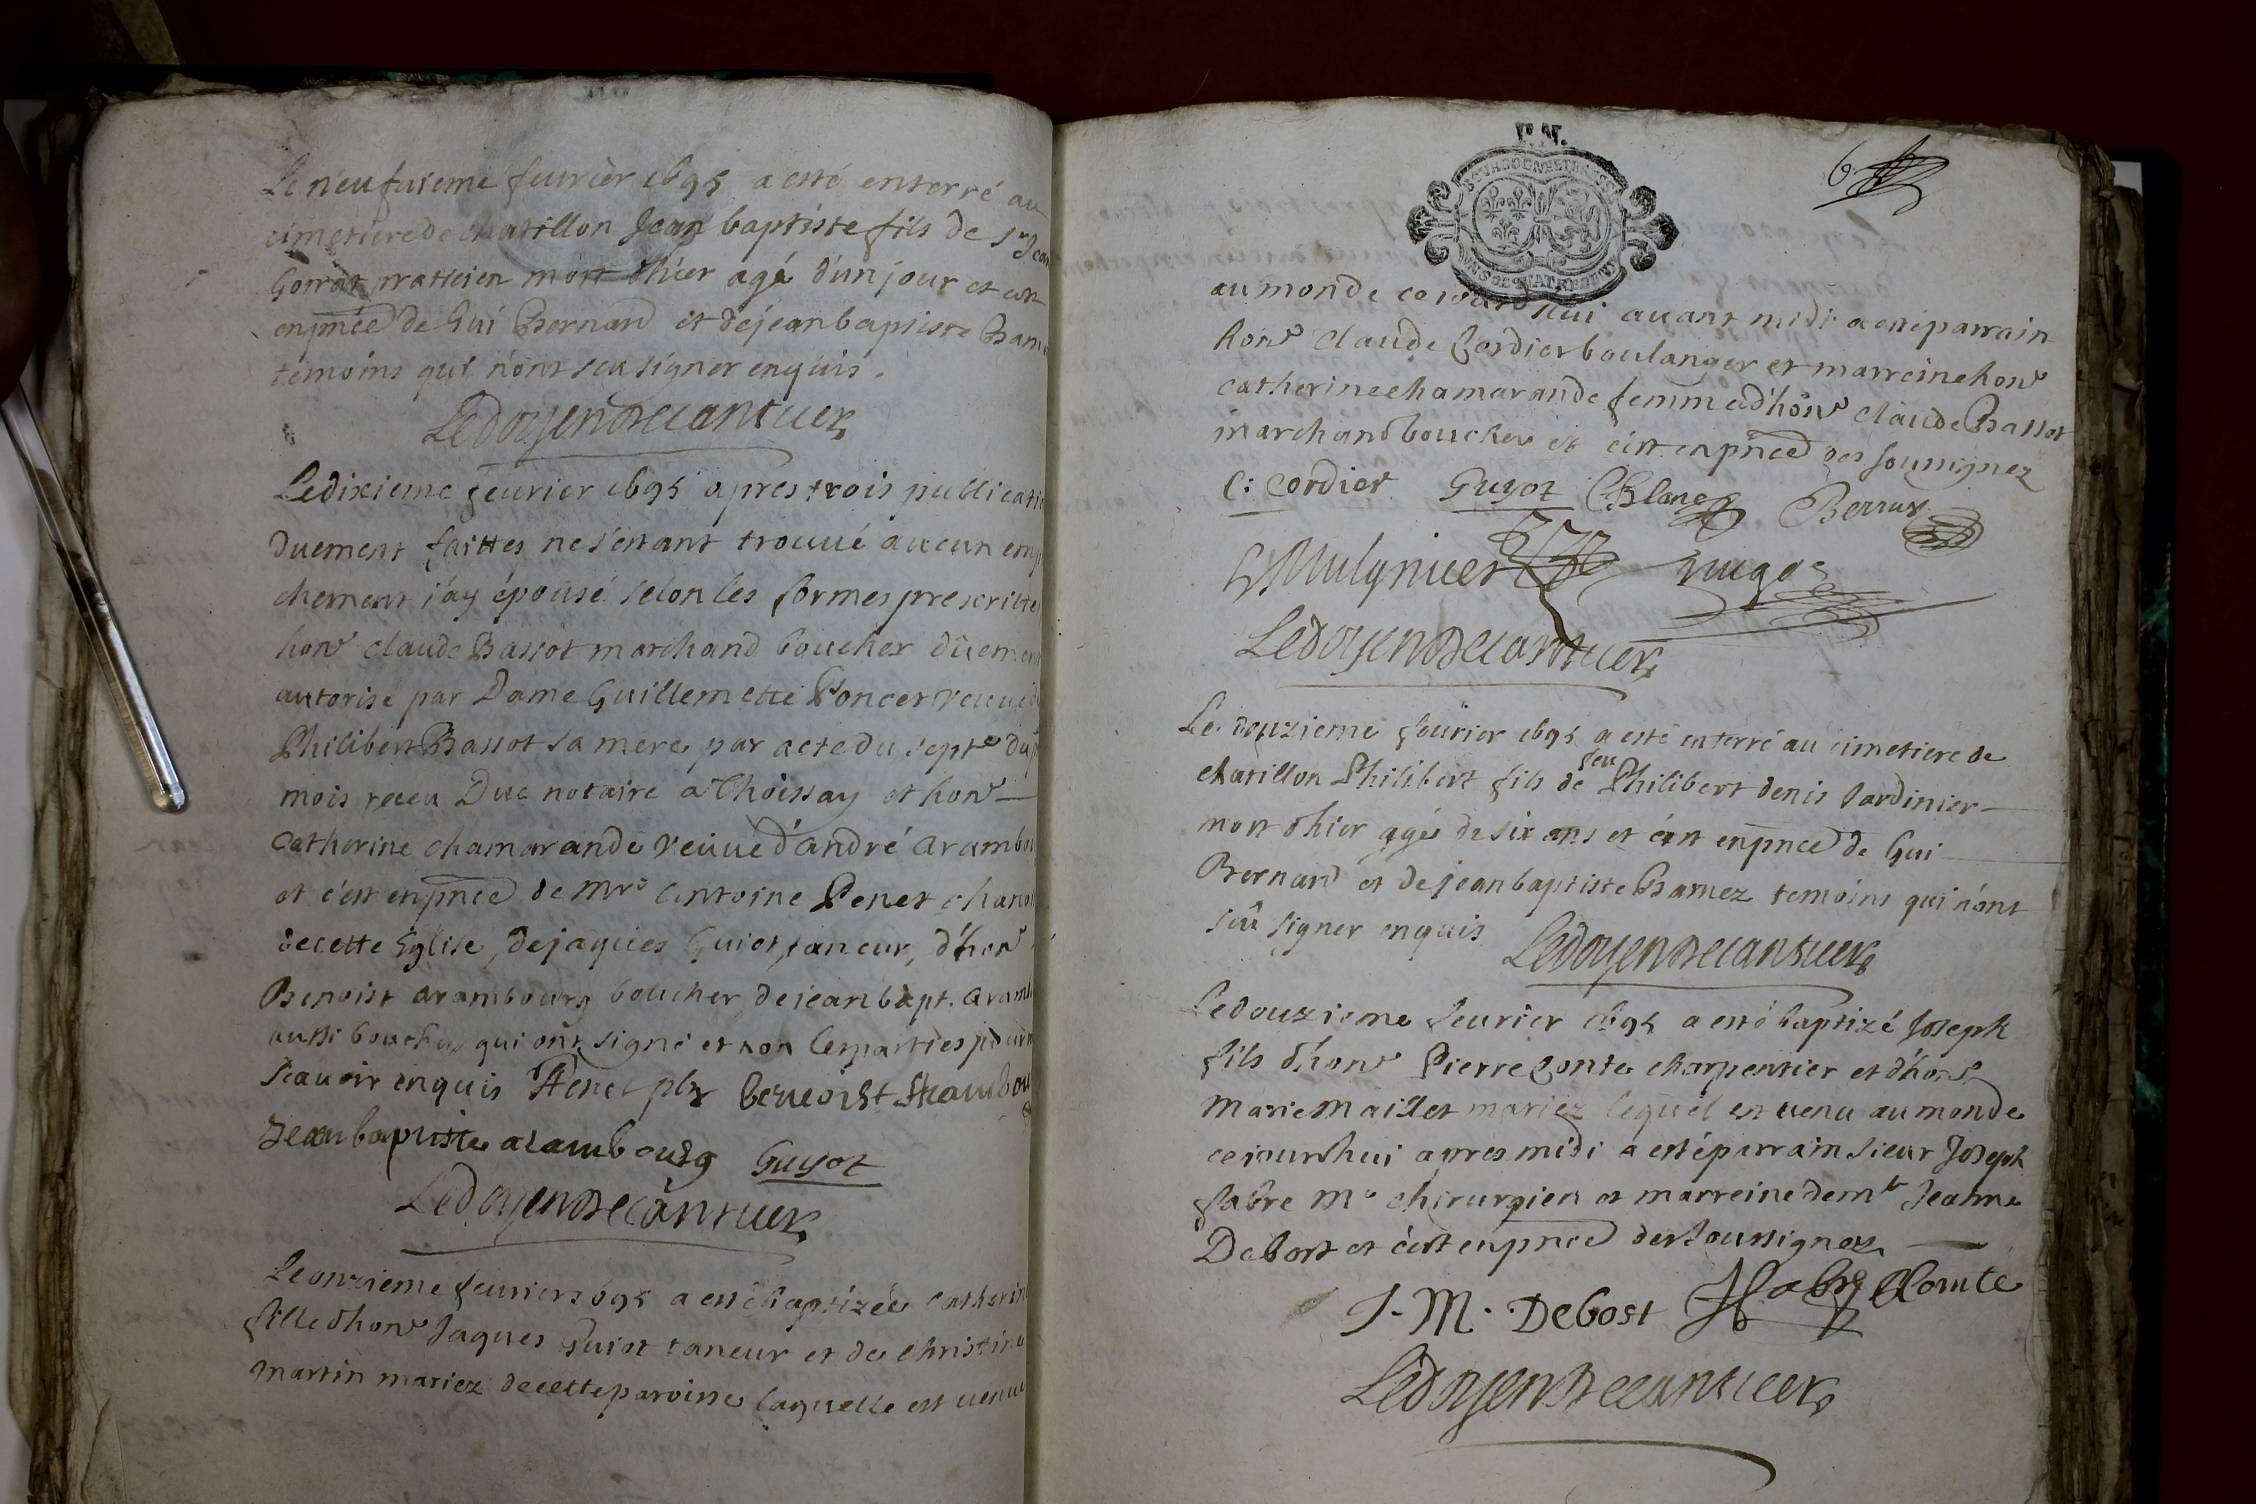 Le neufuieme feurier 1695 a esté enterré au
cimetiere de chatillon Jean baptiste fils de sr Jean
Gorrat praticien mort d'hier agé d'un jour et c'est
enpñce de Gui Bernard et de jean baptiste Bam
temoins qui n'ont sceu signer enquis.
Ledoyen Decantuer
Ledixieme feurier 1695 apres trois publicati
duement faittes ne s'estant trouué aucun emp
chement j'ay épousé selon les formes prescritte
honr claude Bassot marchand boucher düemen
autorisé par Dame Guillemette Poncet veuue d
Philibert Bassot sa mere par acte du sept e du pt
mois receu Duc notaire a Thoissay et honr
catherine chamarande veuue d'andré arambou
et c'est enpñce de Mre antoine Penet chanoi
decette Eglise, de jaques Guiot taneur, d'honr
Benoist arambourg boucher, de jean bapt. aramb
aussi boucher qui ont signé et non les parties pour
scauoir enquis Penet pbr benoist Arambou
Jean baptiste arambourg Guyot
Ledoyen Decantuer
Leonzieme feurier 1695 a esté baptizée catherin
fille d'honr Jaques Guiot taneur et de christine
martin mariez decette paroisse laquelle est venue
H.N.
BOURGOGNE ET BRESSE
6
au monde cejourd'hui auant midi a esté parrain
honr claude Cordier boulanger et marreine honr
catherine chamarande femme d'honr claude Bassot
marchand boucher et c'est enpñce des soussignez
C: cordier Guyot CBlanc Bernux
Mulgnier hugos
Ledoyen Decantuer
Le douzieme feurier 1695 a esté enterré au cimetiere de
chatillon Philibert fils de feu Philibert denis Jardinier
mort d'hier agé de six ans et c'est enpñce de Gui
Bernard et de jean baptiste Bamez temoins qui n'ont
sçû signer enquis Ledoyen Decantuer
Ledouzieme feurier 1695 a esté baptizé Joseph
fils d'honr Pierre Conte charpentier et d'honr
Marie Maillet mariez lequel est venu au monde
cejourd'hui apres midi a esté parrain sieur Joseph
fabre Me chirurgien et marreine demlle Jeanne
Debost et c'est enpñce des soussignez
J. M. Debost JFabre Comte
Ledoyen Decantuer